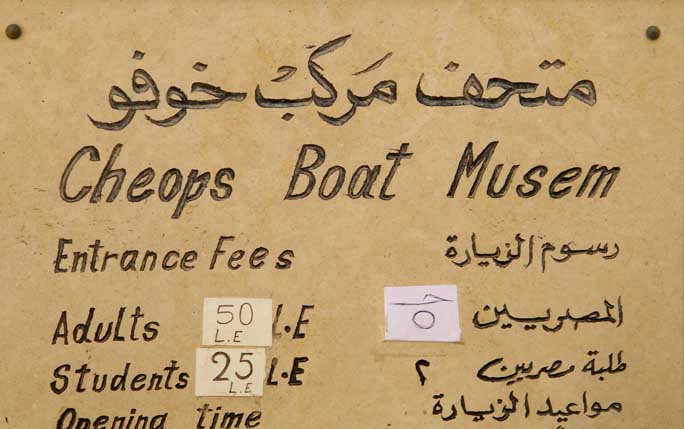 متحف مَركبْ خوفو
Cheops Boat Musem
Entrance Fees رسوم الزيارة
Adults 50 L.E L.E المصريين ٥ جـ
Students 25 L.E L.E طلبة مصريين ٢
Opening time مواعيد الزيارة